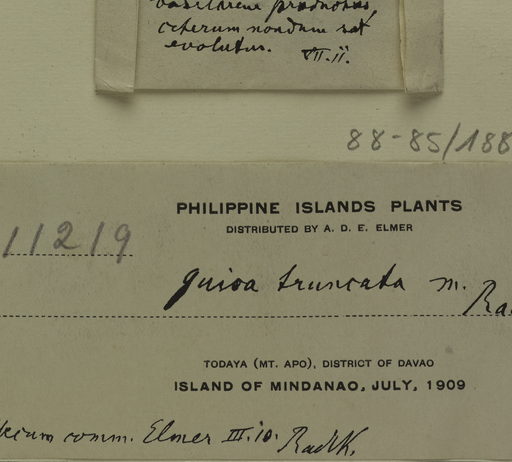 basilarem praenotas,
ceterum nondum sat
evolutus. VII.ii.
88-85/188
11219
PHILIPPINE ISLANDS PLANTS
DISTRIBUTED BY A. D. E. ELMER
Guioa truncata m.
Ra
TODAYA (MT. APO), DISTRICT OF DAVAO
ISLAND OF MINDANAO, JULY, 1909
mecum comm. Elmer III.10. Radlk.